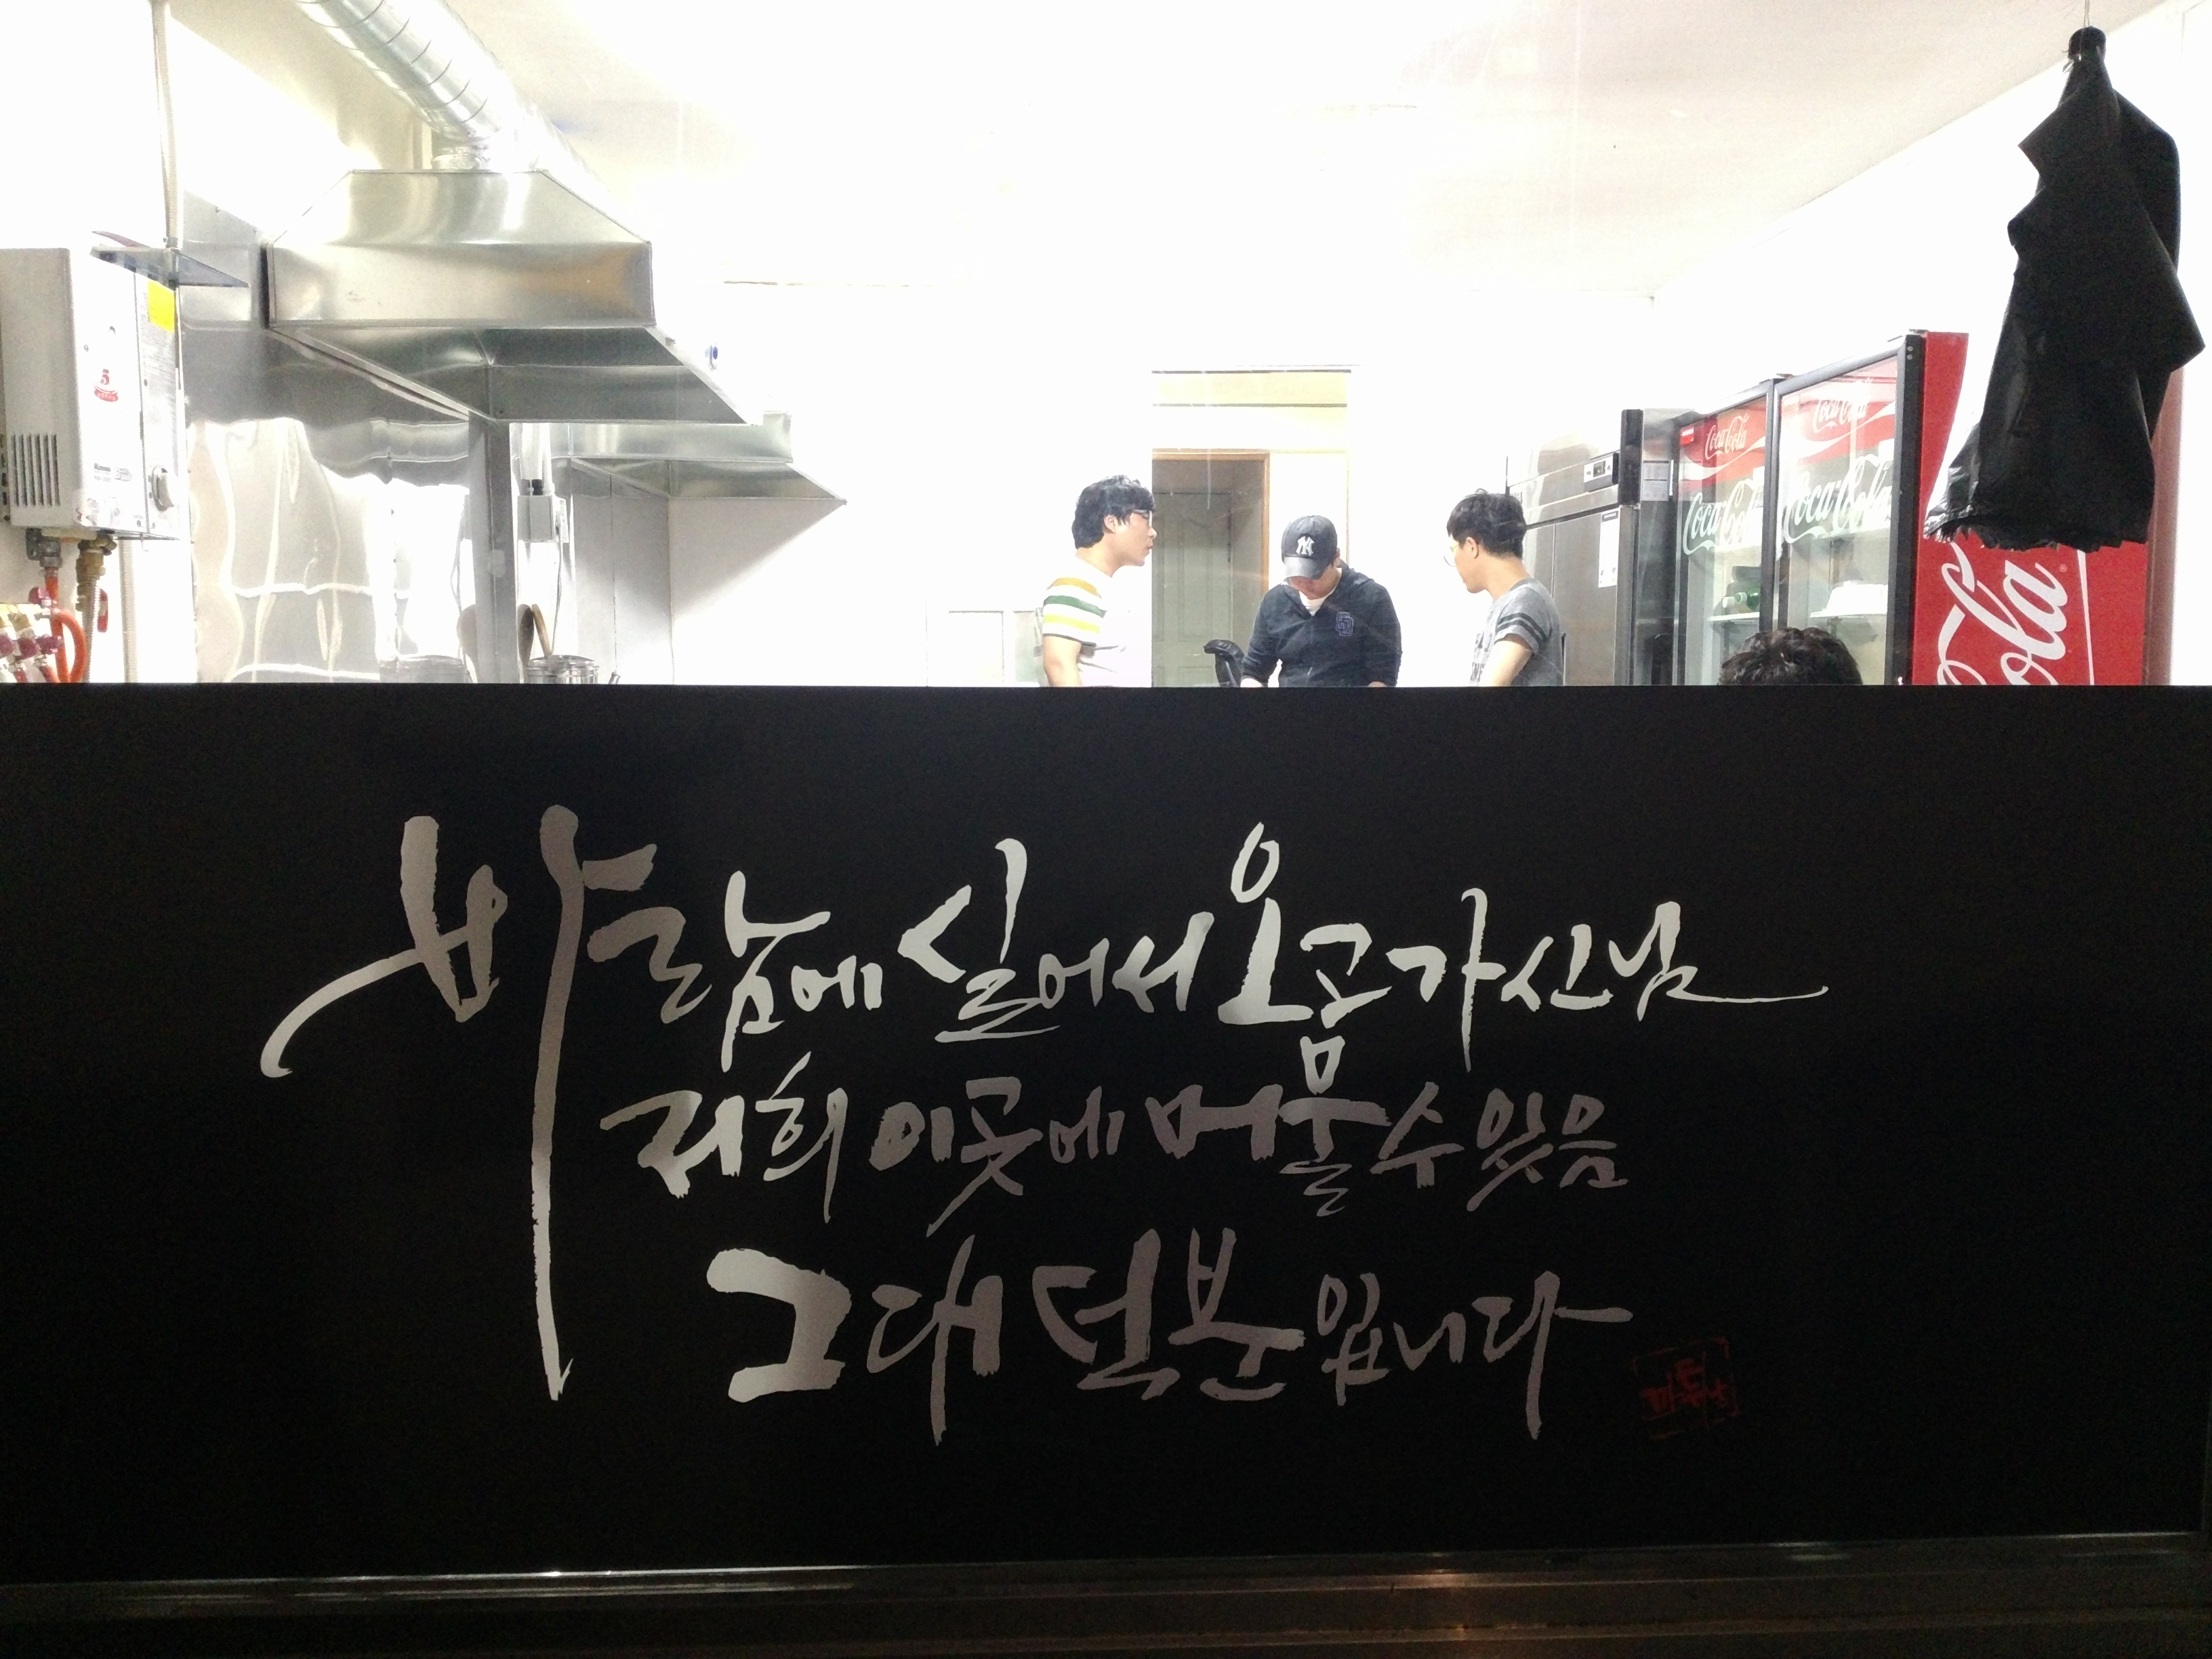 바람에 실어서 오고가신님
저희 이곳에 머물 수 있음
그대 덕분입니다
Coca-Cola
Coca-Cola
Coca-Cola
Coca-Cola
Cola
NY
SD
5